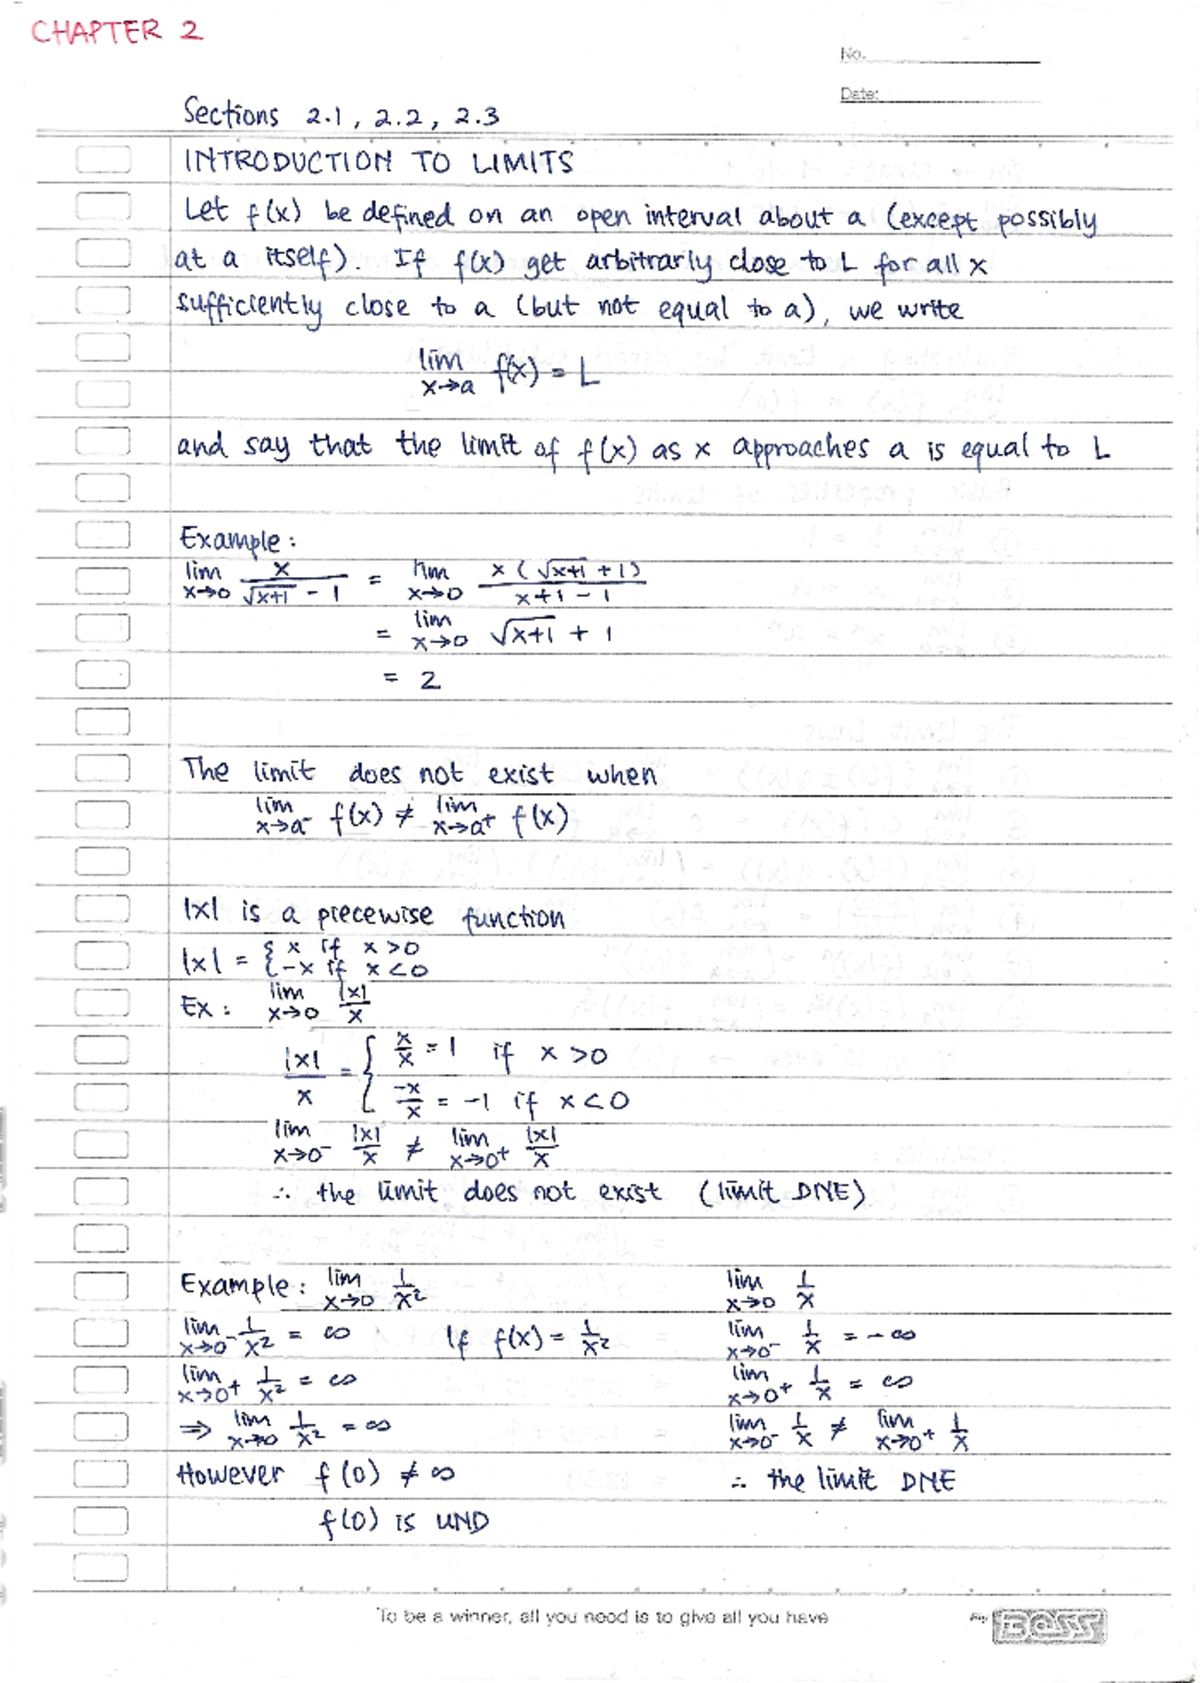 CHAPTER 2
No.
Date:
Sections 2.1, 2.2, 2.3
INTRODUCTION TO LIMITS
Let f(x) be defined on an open interval about a (except possibly
at a itself). If f(x) get arbitrarly close to L for all x
sufficiently close to a (but not equal to a), we write
lim x→a f(x) = L
and say that the limit of f(x) as x approaches a is equal to L
Example :
lim x→0 x/(√x+1 - 1) = lim x→0 x(√x+1 + 1)/(x+1-1)
= lim x→0 √x+1 + 1
= 2
The limit does not exist when
lim x→a⁻ f(x) ≠ lim x→a⁺ f(x)
|x| is a piecewise function
|x| = { x if x >0
{ -x if x <0
Ex : lim x→0 |x|/x
|x|/x = { x/x = 1 if x >0
{ -x/x = -1 if x <0
lim x→0⁻ |x|/x ≠ lim x→0⁺ |x|/x
∴ the limit does not exist (limit DNE)
Example : lim x→0 1/x² lim x→0 1/x
lim x→0⁻ 1/x² = ∞ If f(x) = 1/x² lim x→0⁻ 1/x = -∞
lim x→0⁺ 1/x² = ∞ lim x→0⁺ 1/x = ∞
⇒ lim x→0 1/x² = ∞ lim x→0⁻ 1/x ≠ lim x→0⁺ 1/x
However f(0) ≠ ∞ ∴ the limit DNE
f(0) is UND
To be a winner, all you need is to give all you have
By BOSS